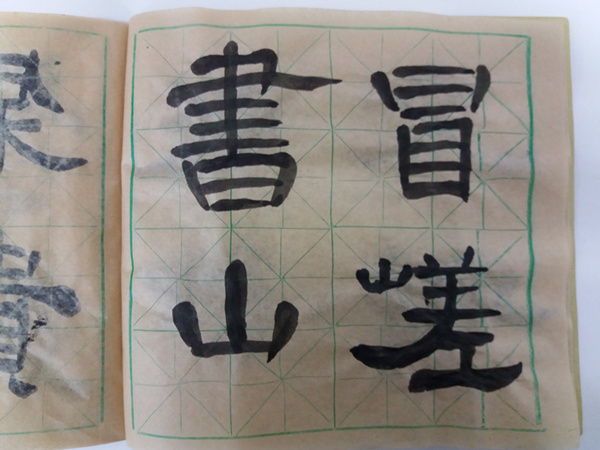 冒嵯
書山